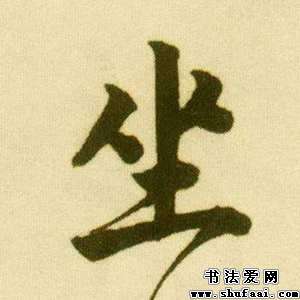 坐
书法爱网
www.shufaai.com